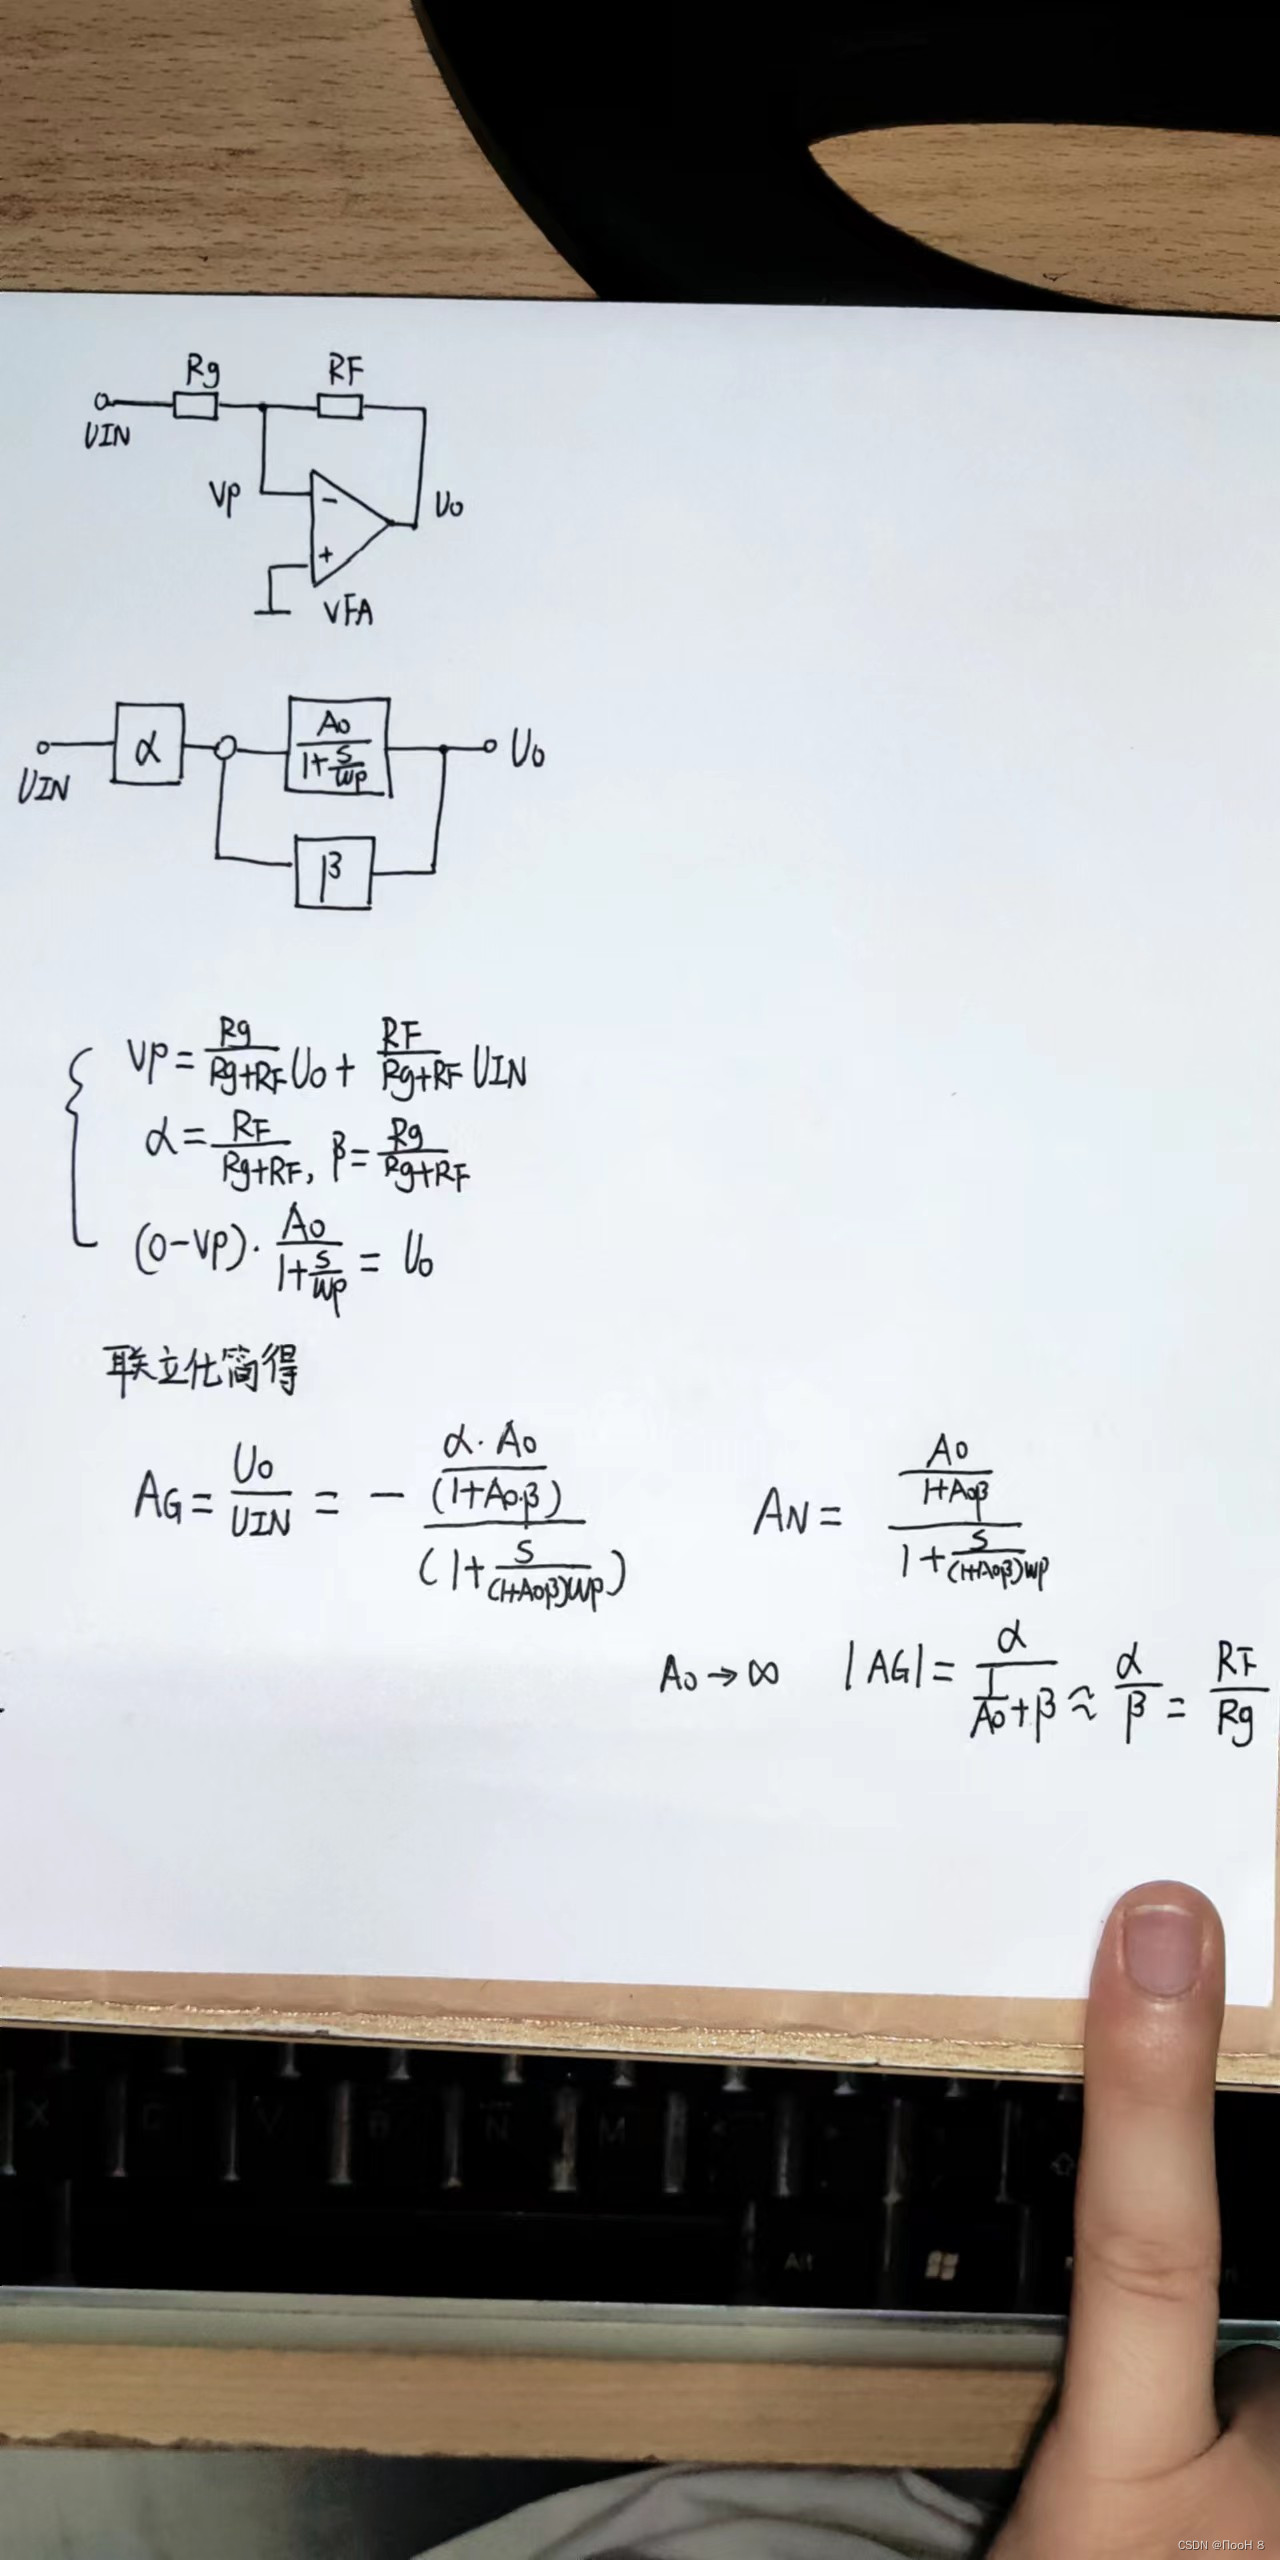 Rg RF
UIN
VP U0
- +
VFA
UIN α A0/(1+S/WP) U0
β
VP = Rg/(Rg+RF) U0 + RF/(Rg+RF) UIN
α = RF/(Rg+RF), β = Rg/(Rg+RF)
(0-VP)· A0/(1+S/WP) = U0
联立化简得
AG = U0/UIN = - (α·A0/(1+A0·β))/(1+S/((1+A0β)WP))
AN = (A0/(1+A0β))/(1+S/((1+A0β)WP))
A0→∞ |AG| = α/(1/A0+β) ≈ α/β = RF/Rg
X C V B N M
Alt
CSDN @ПооН 8